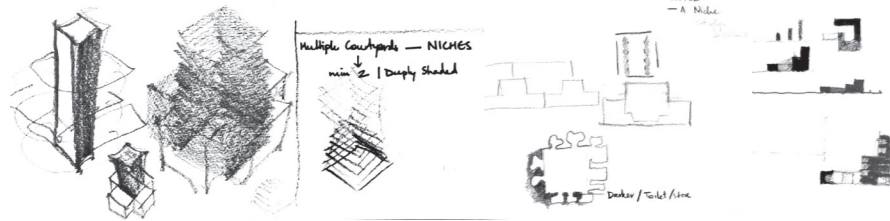 Multiple Courtyards — NICHES
↓
min 2 | Deeply Shaded
— A Niche
/ Toilet / Store